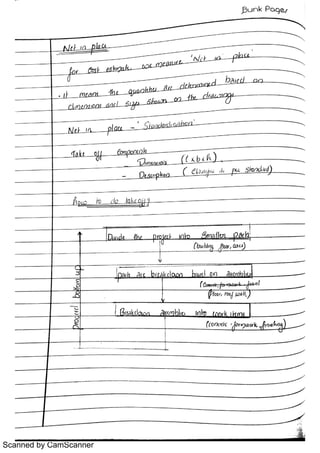 Bunk Pages
Net in place
for Cost estimate we measure 'Net in place'
it means the quantities are determined based on
dimensions and sizes shown on the drawings
Net in place - 'Standardisation'
Take off Components
- Dimension (l x b x h)
- Description ( as per Standard)
how to do take off?
Divide the project into Smaller Parts
(building, floor, area)
parts are breakdown based on assemblies
(floor, roof, wall)
Breakdown assemblies into work items
(concrete, formwork, finishing)
Process: bottom up
Scanned by CamScanner